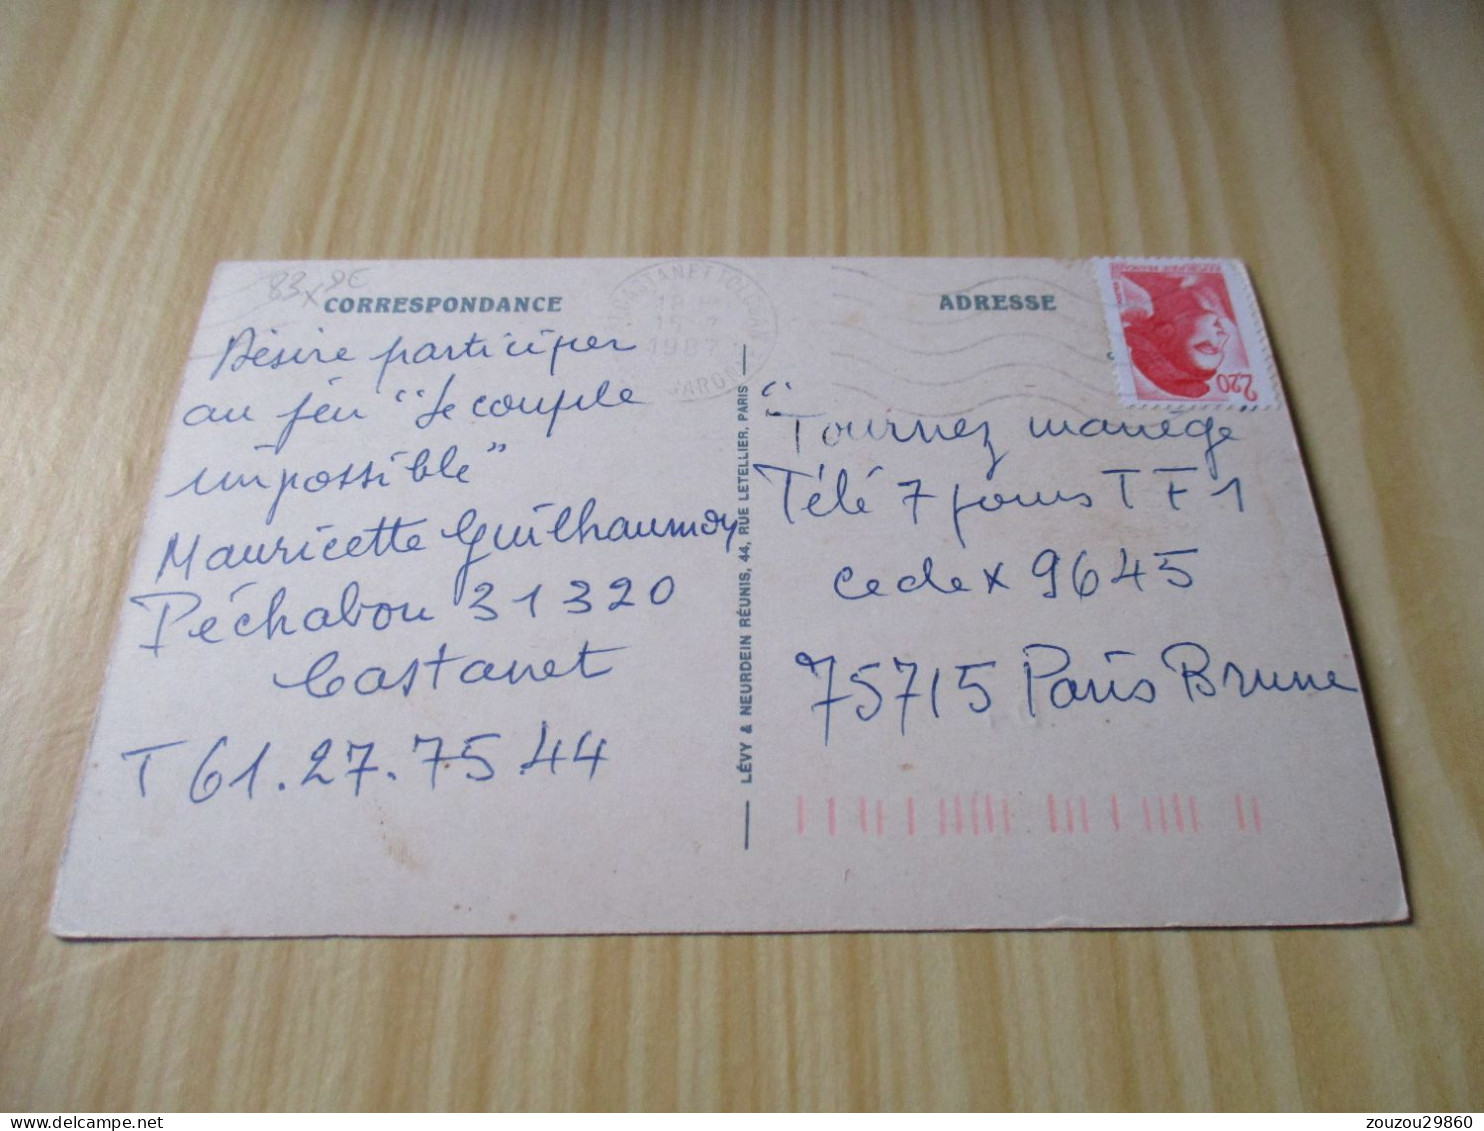 83 x 8€
CORRESPONDANCE
Désire participer
au jeu "Le couple
impossible"
Mauricette Guilhaumon
Péchabou 31320
Castanet
T 61.27.75.44
CASTANET TOLOSAN
1987
GARONNE
LÉVY & NEURDEIN RÉUNIS, 44, RUE LETELLIER, PARIS
ADRESSE
2,20
"Tournez manège"
Télé 7 jours TF1
cedex 9645
75715 Paris Brune
zouzou29860